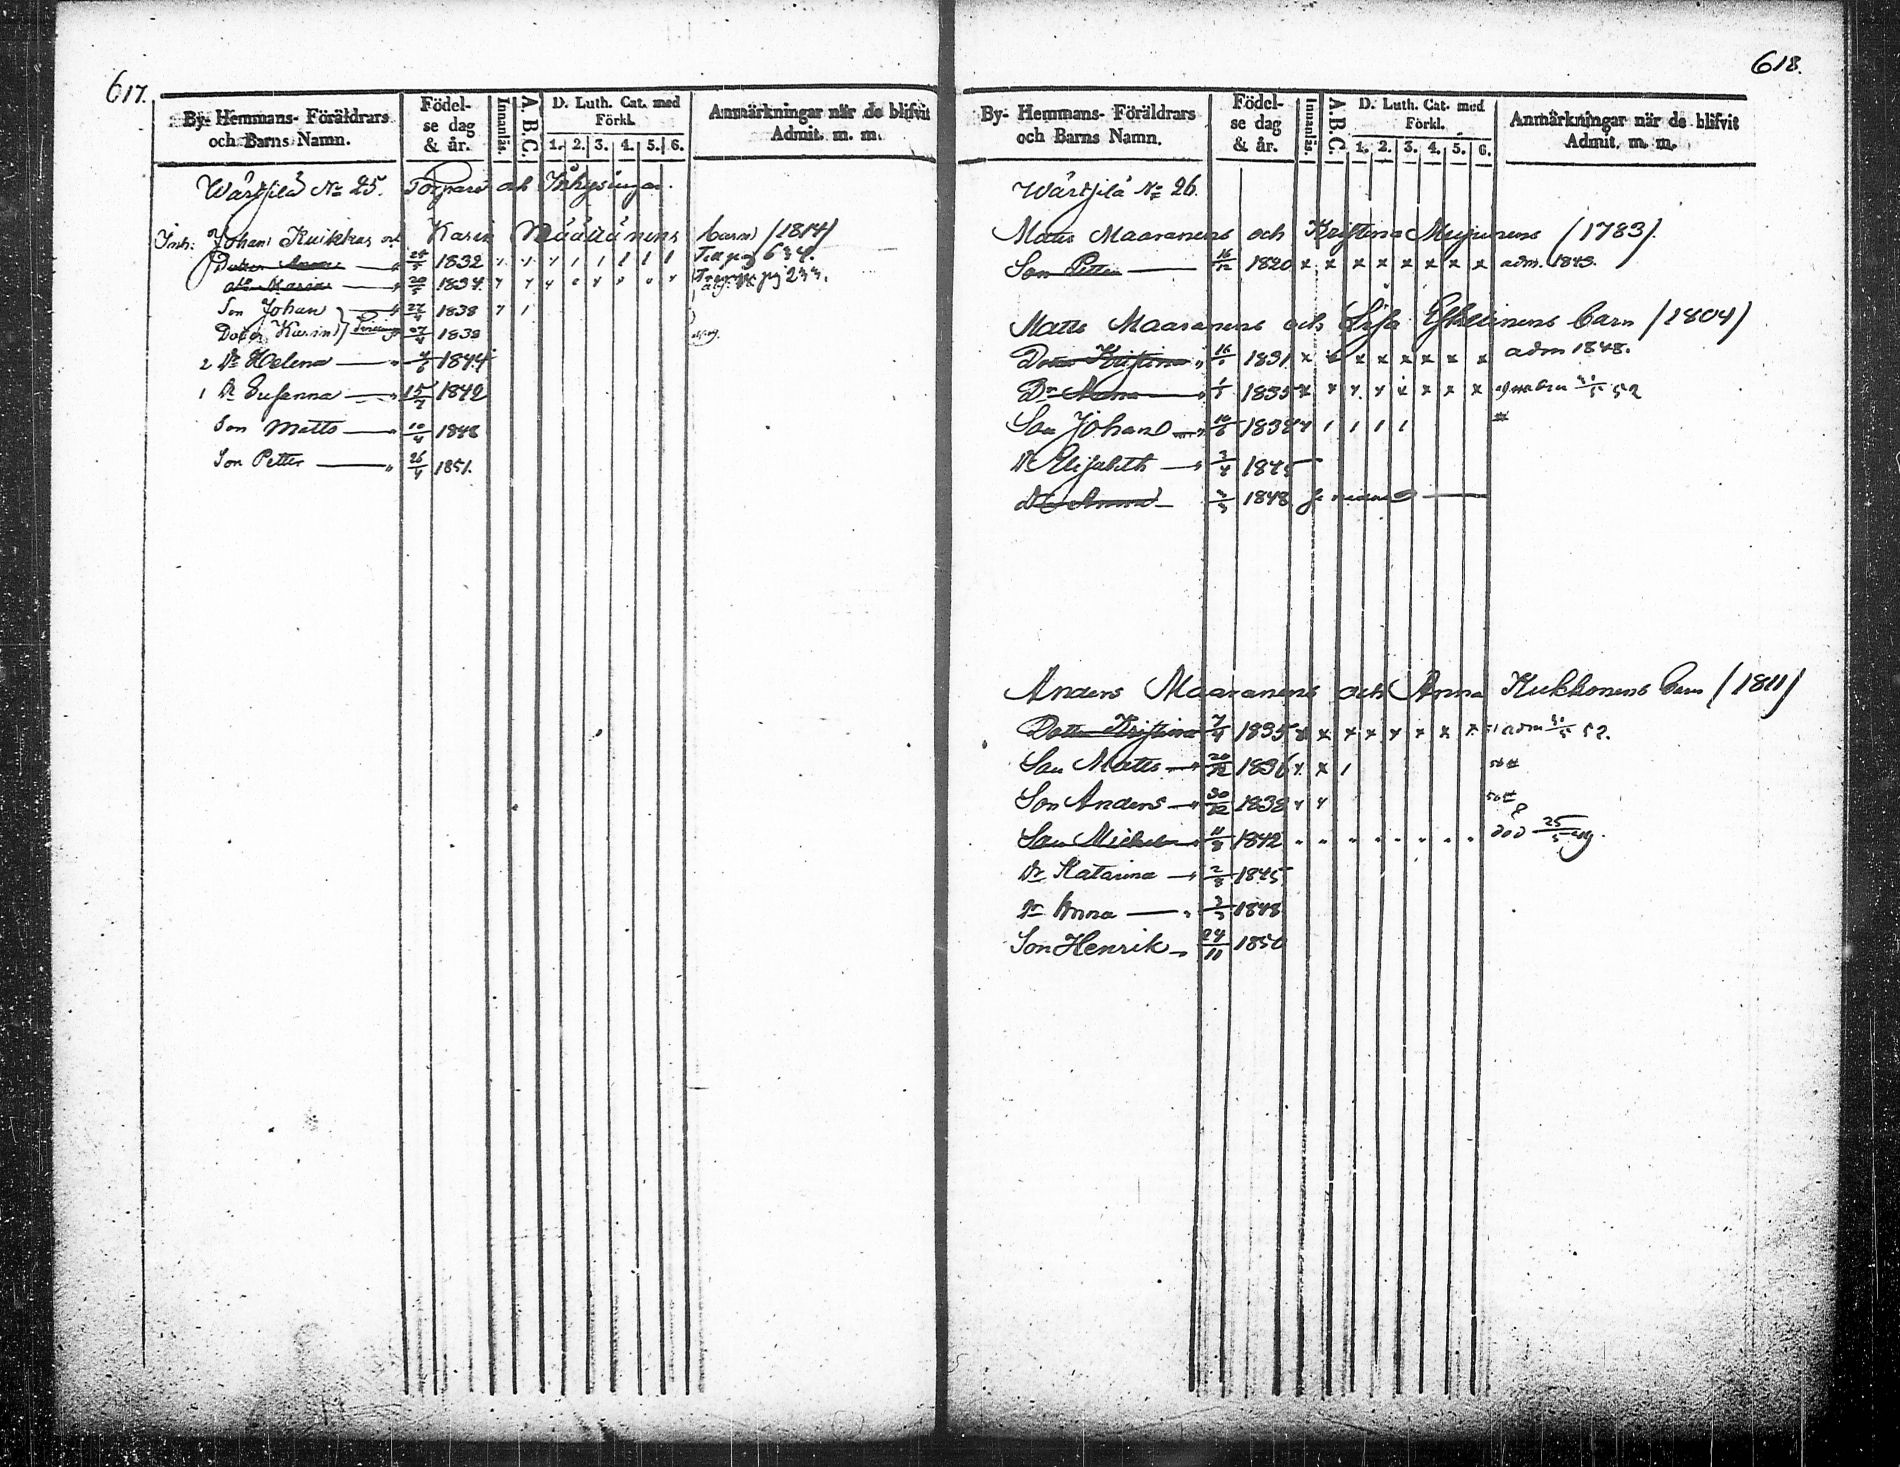 617.
By- Hemmans- Föräldrars och Barns Namn.
Födelse dag & år.
Innanläs.
A.B.C.
D. Luth. Cat. med Förkl.
1. 2. 3. 4. 5. 6.
Anmärkningar när de blifvit Admit. m. m.
Wärtsilä No 25. Torpare och Inhysingar.
Inh: Johan Kuikkas och Karin Määttänens barn (1814)
Dotter Anna 1832 1 1 1 1 1 Till pag 634.
Dr Maria 20/5 1834 pag 233.
Son Johan 27/4 1838
Dotter Karin 27/4 1838
2 Dr Helena 1844
1 Dr Susanna 15/7 1842
Son Matts 10/4 1848
Son Petter 26/4 1851.
618.
By- Hemmans- Föräldrars och Barns Namn.
Födelse dag & år.
Innanläs.
A.B.C.
D. Luth. Cat. med Förkl.
1. 2. 3. 4. 5. 6.
Anmärkningar när de blifvit Admit. m. m.
Wärtsilä No 26.
Matts Maaranens och Kristina (1783).
Son Petter 16/12 1820 x x x x x x x x adm. 1843.
Matts Maaranens och Lisa Eskelinens barn (1804)
Dotter Kristina 1831 x x x x x x x adm 1848.
Dr Anna 1835 x x x x x x x x 52
Son Johan 1838 1 1 1 1
Dr Elisabeth 3/4 1845
Dr Anna 3/5 1848
Anders Maaranens och Anna Kukkonens barn (1811)
Dotter Kristina 7/4 1835 x x x x x x x x adm 52.
Son Matts 20/12 1836 x x 1
Son Anders 30/12 1838
Son Michel 11/8 1842 död 25/5 49.
Dr Katarina 2/8 1845
Dr Anna 3/5 1848
Son Henrik 24/11 1850